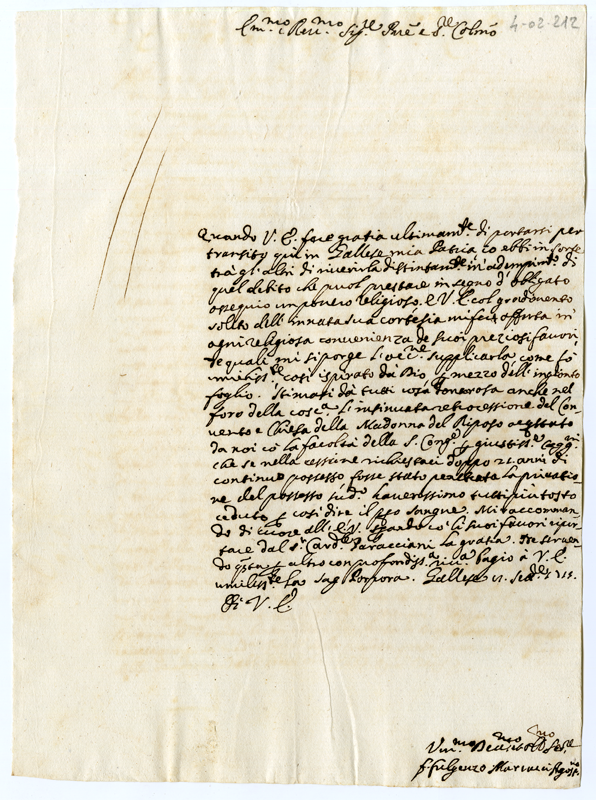 Em.mo e Rev.mo Sig.re Prñe e S.re Colmõ
4-02-212
Quando V. E. fece gratia ultimam.te di portarsi per
transito qui in Gallese mia Patria io ebbi in sorte
trà gl'altri di riverirla distintam.te in adempim.to di
quel debito che puol prestare in segno d'obligato
ossequio un povero religioso. e V. E. col gradimento
solito dell'innata sua cortesia mi fece offerta in
ogni religiosa convenienza de suoi preziosi favori,
le quali mi si porge di supplicarla come fò
umiliss.te così ispirato da Dio p mezzo dell'
foglio. Stimati dà tutti cosa onerosa anche nel
foro della cosc.a l'insinuata retrocessione del Con
vento e Chiesa della Madonna del Riposo
da noi cõ la facoltà della S. Cong.e p giustiss.e
che se nella cessione richiestaci doppo 21 anni di
continuo possesso fosse stato penetrata la privatio
ne del possesso sud.o haveressimo tutti più tosto
ceduto p così dire il pprio sangue. Mi raccoman
do di cuore all'E. V. cõ li suoi favori
tare dal S.r Card.e Paracciani la gratia.
do altro con profondiss.a riv.a bagio à V. E.
umiliss.te la Sag. Porpora. Gallese Sett.e 1715.
Di V. E.
Um.mo Dev.mo Ser.re
f. Fulgenzo Mariani Agost.no